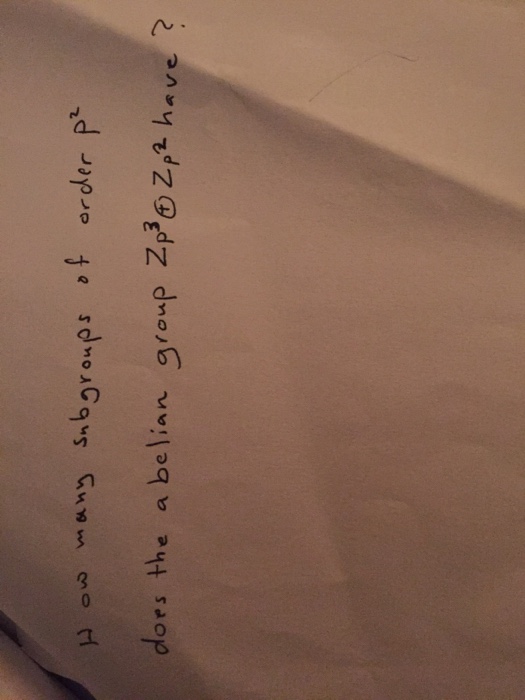 How many subgroups of order p²
does the abelian group Zp³ ⊕ Zp² have?